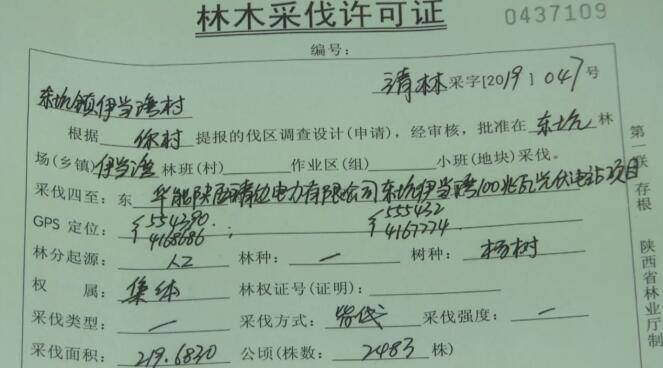 林木采伐许可证 0437109
编号：
靖林采字[2019]047号
东坑镇伊当湾村
根据 你村 提报的伐区调查设计(申请)，经审核，批准在 东坑 林
场(乡镇)伊当湾 林班(村) 作业区(组) 小班(地块)采伐。
采伐四至：东 华能陕西靖边电力有限公司东坑伊当湾100兆瓦光伏电站项目
GPS 定位： 554390 555432
4168686； 4167274
林分起源： 人工 林种： 一 树种： 杨树
权 属： 集体 林权证号(证明)：
采伐类型： 一 采伐方式： 皆伐 采伐强度： 一
采伐面积： 219.6830 公顷(株数： 2483 株)
第一联 存根 陕西省林业厅制